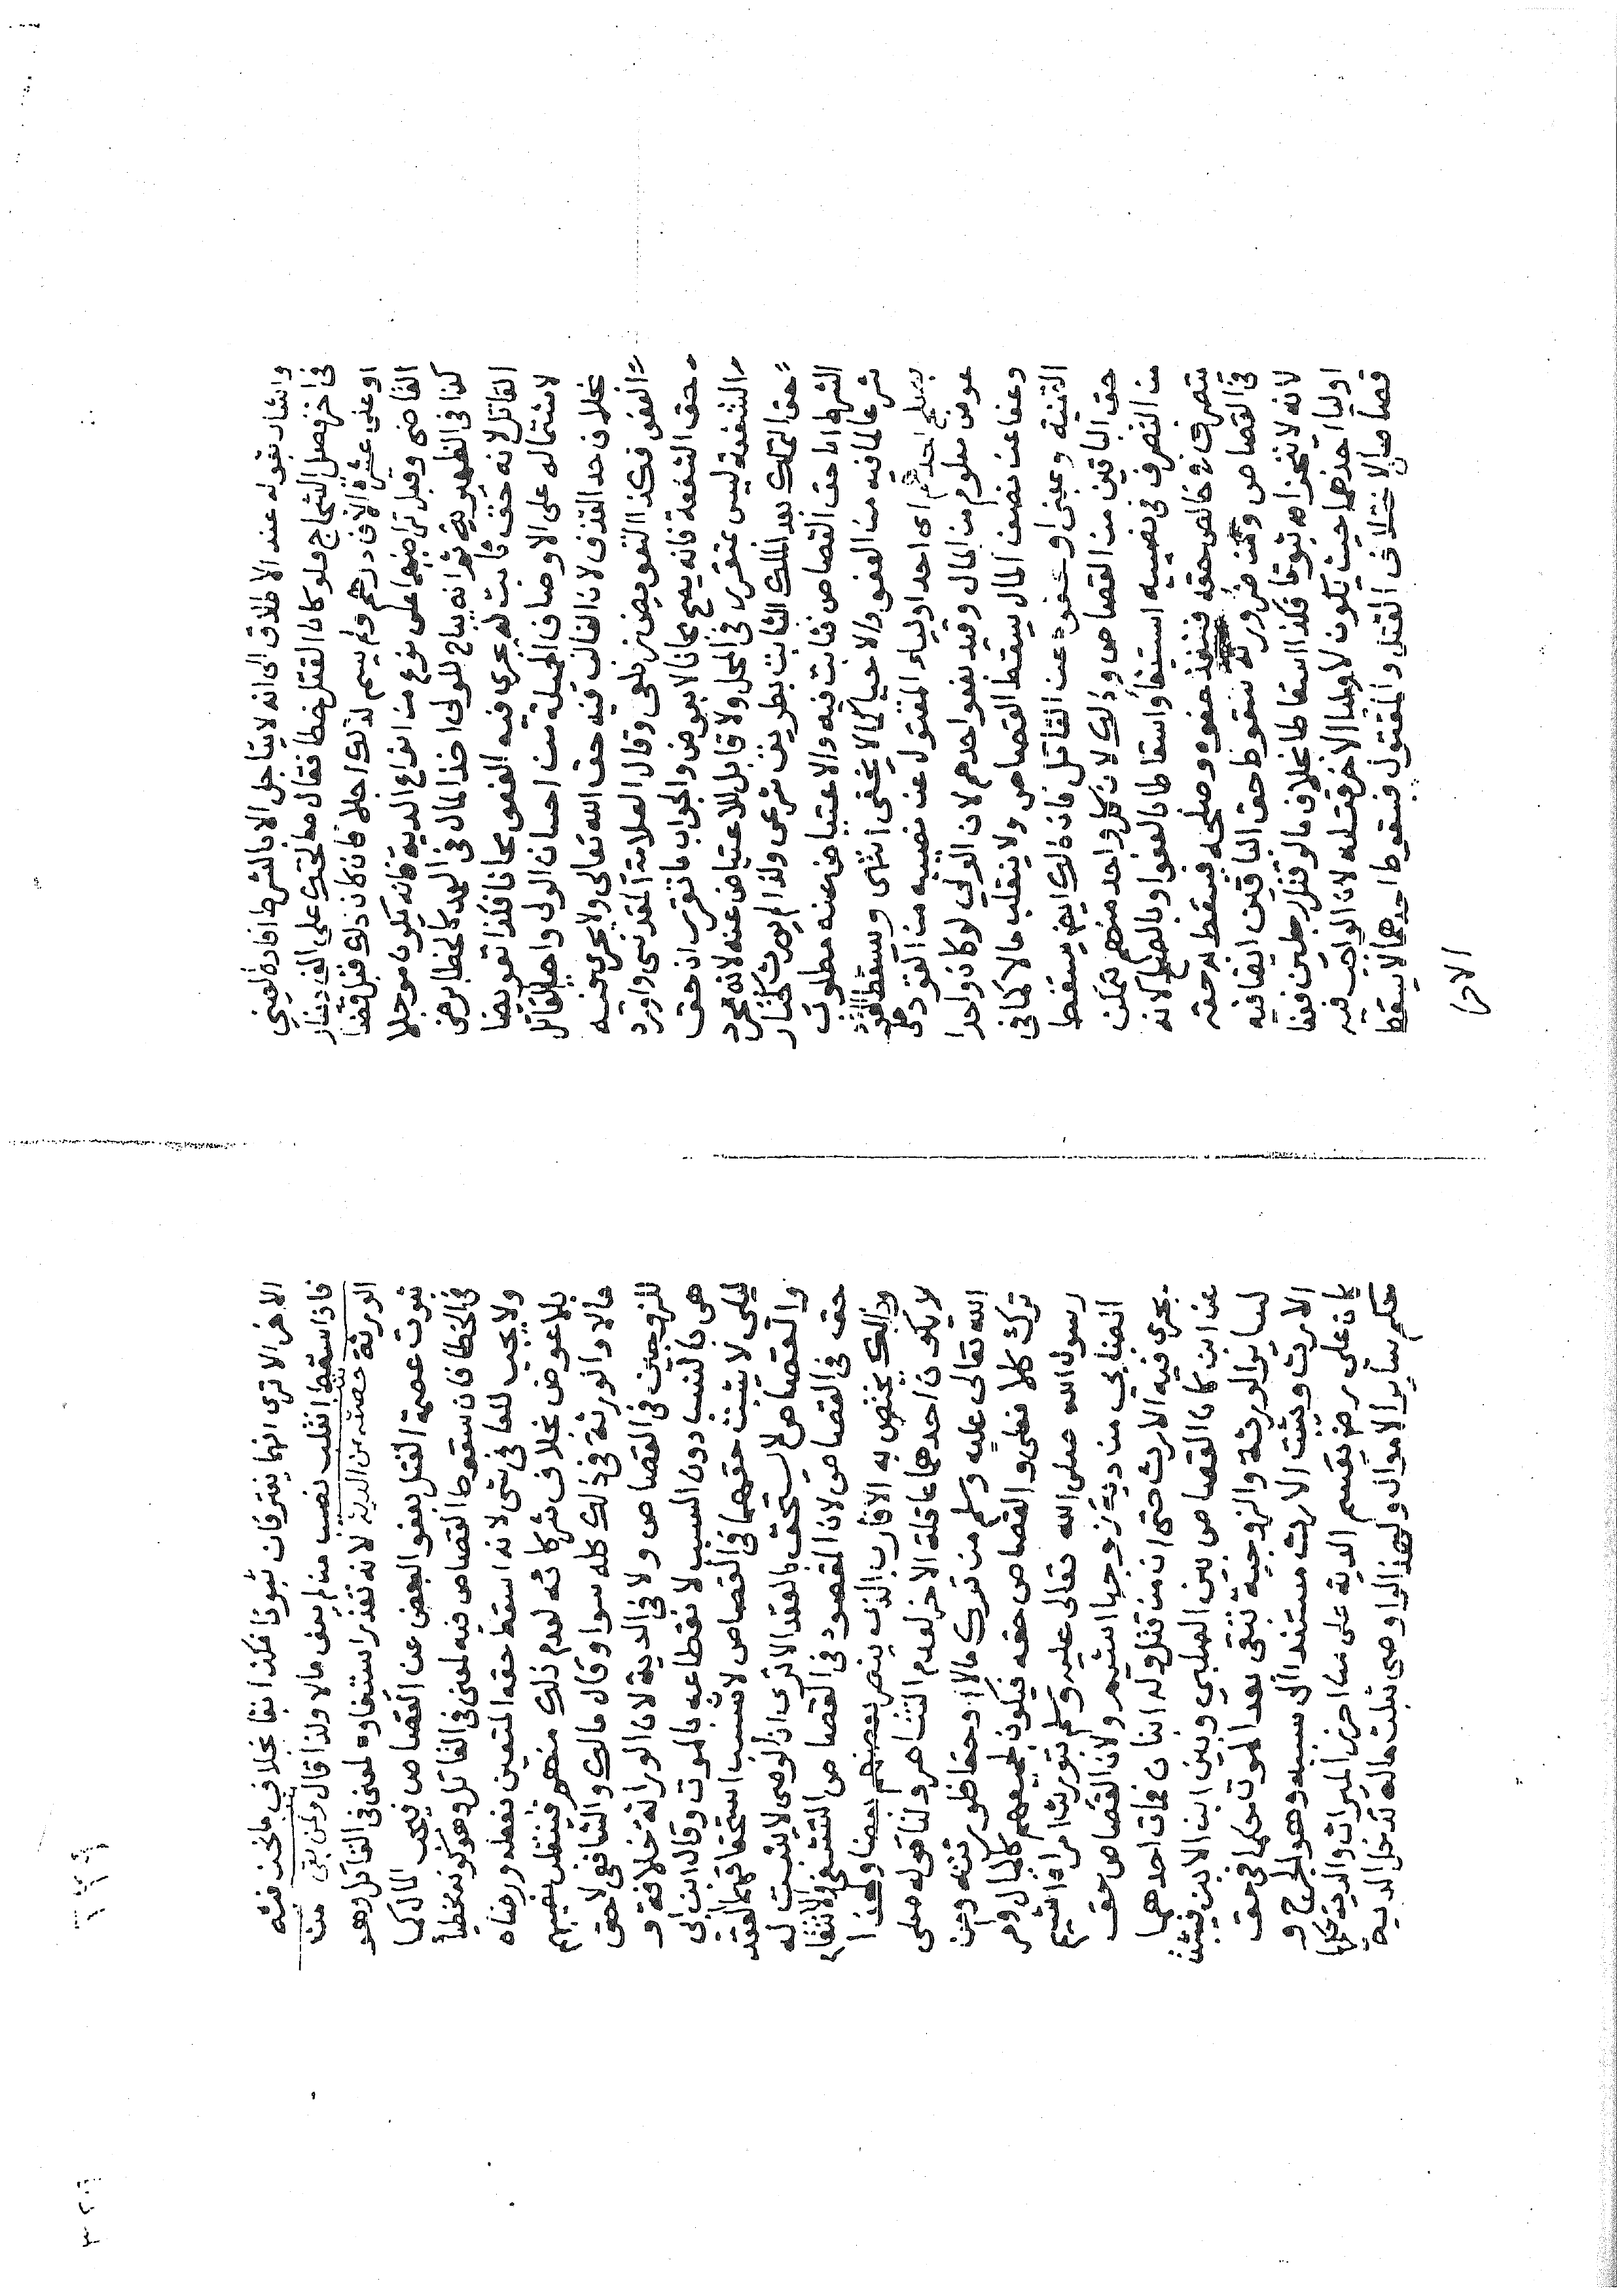 واشار بقوله عند الاطلاق الى انه لا يتاجل الا بالشرط افاده العيني
في اخر فصل الشجاج ولو كان القتل خطا فقال صالحتك على الف دينار
او على عشرة الاف درهم ولم يسم لذلك اجلا فان كان ذلك قبل قضا
القاضي وقبل تراضيهما على نوع من انواع الدية فانه يكون موجلا
كذا في الظهيرية ثم انه يباح للولى اخذ المال في العمد كالخطا برضى
القاتل لانه حق ثابت له يجري فيه العفو مجانا فكذا تعويضا
لاشتماله على الاوصاف الجميلة من احسان الولى واحيا القاتل
بخلاف حد القذف لان الغالب فيه حق الله تعالى ولا يجري فيه
العفو فكذا التعويض زيلعى وقال العلامة المقدسى واورد
حق الشفعة فانه يصح مجانا لا بعوض والجواب ما تقرر ان حق
الشفعة ليس بمتقرر في المحل ولا قابل للاعتياض عنه لانه مجرد
حق التملك بعد الملك الثابت بطريق شرعى ولذا لم يورث كخيار
الشرط اما حق القصاص فثابت فيه والاعتياض عنه مطلوب
شرعا لما فيه من العفو والاحيا كما لا يخفى انتهى ويسقط القود
بصلح احدهم اى احد اولياء المقتول عن نصيبه من القود على
عوض معلوم من المال وقيد بعفو احدهم لان الولي لو كان واحدا
وعفا عن نصف المال يسقط القصاص ولا ينقلب مالا كما في
القنية وعفى او عفوه عن القاتل فان ذلك ايضا يسقط
حق الباقين من القصاص وذلك لان كل واحد منهم تمكن
من التصرف في نصيبه استيفاء واسقاطا بالعفو او بالصلح لانه
يتصرف في خالص حقه فينفذ عفوه وصلحه فيسقط به حقه
في القصاص ومن ضرورته سقوط حق الباقين ايضا فيه
لانه لا يتجزا ثبوتا فكذا اسقاطا بخلاف ما لو قتل رجلين فعفا
اوليا احدهما حيث يكون لاوليا الاخر قتله لان الواجب فيه
قصاصان لاختلاف القتل والمقتول فبسقوط احدهما لا يسقط
الاخر
الاخر الا ترى انهما يفترقان ثبوتا فكذا بقا بخلاف ما نحن فيه
فاذا سقط انقلب نصيب من لم يعف مالا ولذا قال ولمن بقى من
الورثة حصته من الدية لانه تعذر استيفاوه لمعنى في القاتل وهو
ثبوت عصمة القتل بعفو البعض عن القصاص فيجب المال كما
في الخطا فان سقوط القصاص فيه لمعنى في القاتل وهو كونه مخطيا
ولا يجب للعافي شى لانه اسقط حقه المتعين بفعله ورضاه
بلا عوض بخلاف شركائه لعدم ذلك منهم فينقلب نصيبهم
مالا والورثة في ذلك كله سوا وقال مالك والشافعى لا حق
للزوجين في القصاص ولا في الدية لان الوراثة خلافة و
هى بالنسب دون السبب لانقطاعه بالموت وقال ابن ابى
ليلى لا يثبت حقهما في القصاص لان سبب استحقاقهما العقد
والقصاص لا يستحق بالعقد الا ترى ان الوصى لا يثبت له
حق في القصاص لان المقصود في القصاص التشفى والانتقام
وذلك يختص به الاقارب الذين ينصر بعضهم بعضا ولهذا
لا يكون احدهما عاقلة الاخر لعدم التناصر ولنا قوله صلى
الله تعالى عليه وسلم من ترك مالا او حقا فلورثته ومن
ترك كلا فعلى والقصاص حقه فيكون لجميعهم كالمال وامر
رسول الله صلى الله تعالى عليه وسلم بتوريث امراة اشيم
الضبابي من دية زوجها اشيم ولان القصاص حق
يجرى فيه الارث حتى ان من قتل وله ابنان فمات احدهما
عن ابن كان القصاص بين الصلبي وبين ابن الابن فيثبت
لساير الورثة والزوجية تبقى بعد الموت حكما في حق
الارث ويثبت الارث مستندا الى سببه وهو الجرح و
كان على رضى يقسم الدية على من احرز الميراث والدية حكمها
حكم ساير الاموال ولهذا لو اوصى بثلث ماله تدخل الدية